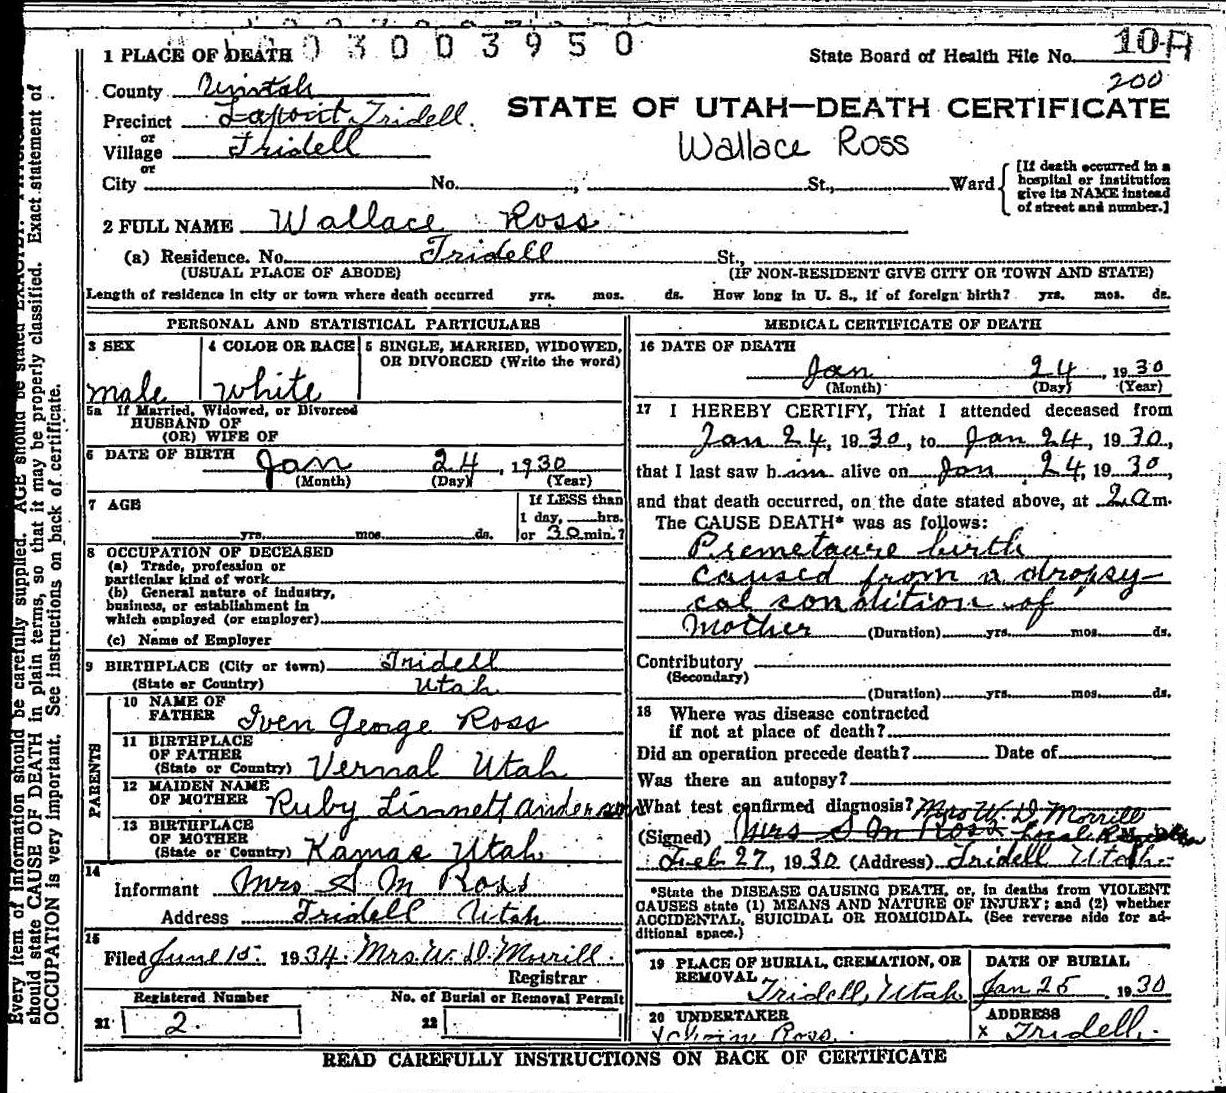 0 3 0 0 3 9 5 0
1 PLACE OF DEATH
State Board of Health File No. 10-A
200
County Uintah
Precinct Lapoint-Tridell.
or
Village Tridell
or
STATE OF UTAH—DEATH CERTIFICATE
Wallace Ross
City No. , St., Ward
[If death occurred in a
hospital or institution
give its NAME instead
of street and number.]
2 FULL NAME Wallace Ross
(a) Residence. No. Tridell St.,
(USUAL PLACE OF ABODE) (IF NON-RESIDENT GIVE CITY OR TOWN AND STATE)
Length of residence in city or town where death occurred yrs. mos. ds. How long in U. S., if of foreign birth? yrs. mos. ds.
PERSONAL AND STATISTICAL PARTICULARS
3 SEX
male
4 COLOR OR RACE
white
5 SINGLE, MARRIED, WIDOWED,
OR DIVORCED (Write the word)
5a If Married, Widowed, or Divorced
HUSBAND OF
(OR) WIFE OF
6 DATE OF BIRTH Jan 24, 1930
(Month) (Day) (Year)
7 AGE
yrs. mos. ds.
If LESS than
1 day, hrs.
or 30 min.?
8 OCCUPATION OF DECEASED
(a) Trade, profession or
particular kind of work
(b) General nature of industry,
business, or establishment in
which employed (or employer)
(c) Name of Employer
9 BIRTHPLACE (City or town) Tridell
(State or Country) Utah
PARENTS
10 NAME OF
FATHER Iven George Ross
11 BIRTHPLACE
OF FATHER
(State or Country) Vernal Utah
12 MAIDEN NAME
OF MOTHER Ruby Linnett anderson
13 BIRTHPLACE
OF MOTHER
(State or Country) Kamas Utah
14
Informant Mrs S M Ross
Address Tridell Utah
15
Filed June 15. 1934. Mrs. W. D. Morrill.
Registrar
Registered Number
21 2.
No. of Burial or Removal Permit
22
MEDICAL CERTIFICATE OF DEATH
16 DATE OF DEATH
Jan 24, 1930
(Month) (Day) (Year)
17 I HEREBY CERTIFY, That I attended deceased from
Jan 24, 1930, to Jan 24, 1930,
that I last saw him alive on Jan 24, 1930,
and that death occurred, on the date stated above, at 2 am.
The CAUSE DEATH* was as follows:
Premetaure birth
caused from a dropsy-
cal condition of
Mother (Duration) yrs. mos. ds.
Contributory
(Secondary)
(Duration) yrs. mos. ds.
18 Where was disease contracted
if not at place of death?
Did an operation precede death? Date of
Was there an autopsy?
What test confirmed diagnosis? Mrs W. D. Morrill
(Signed) Mrs S M Ross Local
Feb 27, 1930 (Address) Tridell Utah.
*State the DISEASE CAUSING DEATH, or, in deaths from VIOLENT
CAUSES state (1) MEANS AND NATURE OF INJURY; and (2) whether
ACCIDENTAL, SUICIDAL OR HOMICIDAL. (See reverse side for ad-
ditional space.)
19 PLACE OF BURIAL, CREMATION, OR
REMOVAL Tridell, Utah
DATE OF BURIAL
Jan 25, 1930
20 UNDERTAKER
Ross.
ADDRESS
x Tridell.
READ CAREFULLY INSTRUCTIONS ON BACK OF CERTIFICATE
Every item of information should be carefully supplied. AGE should be stated EXACTLY.
should state CAUSE OF DEATH in plain terms, so that it may be properly classified. Exact statement of
OCCUPATION is very important. See instructions on back of certificate.